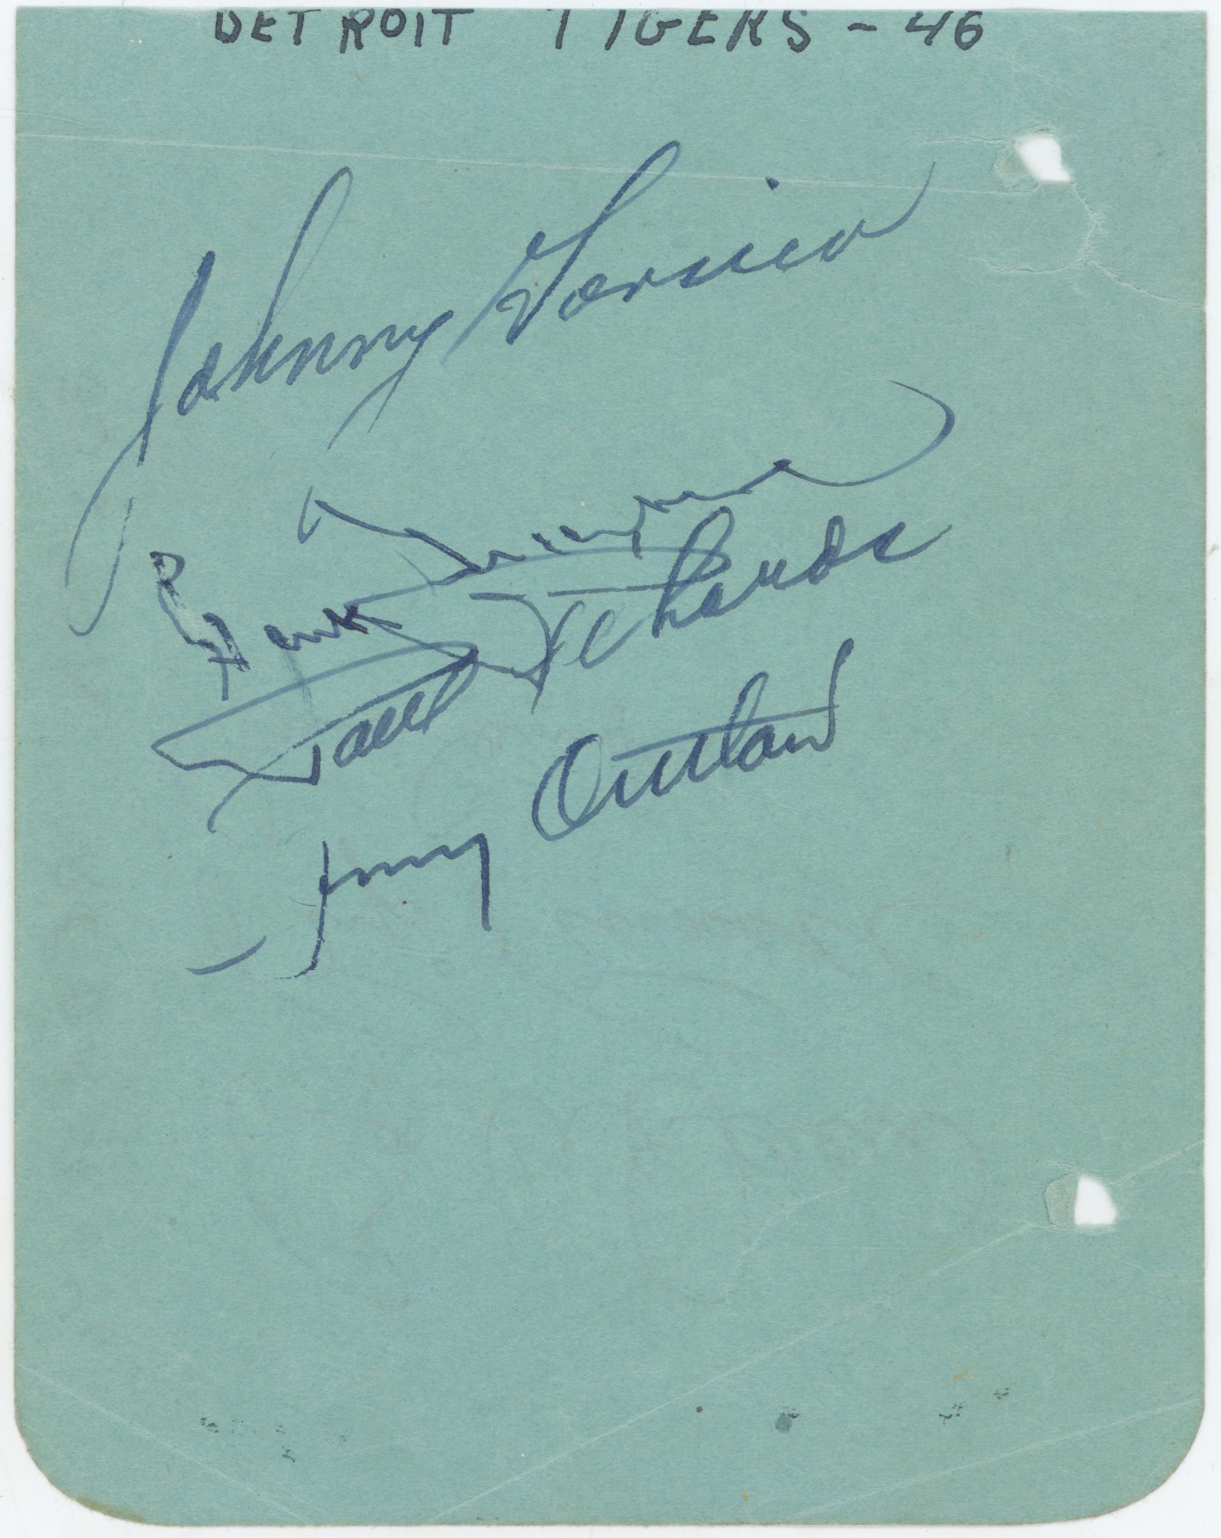 DETROIT TIGERS - 46
Johnny Gorsica
Paul Richards
Jimmy Outlaw